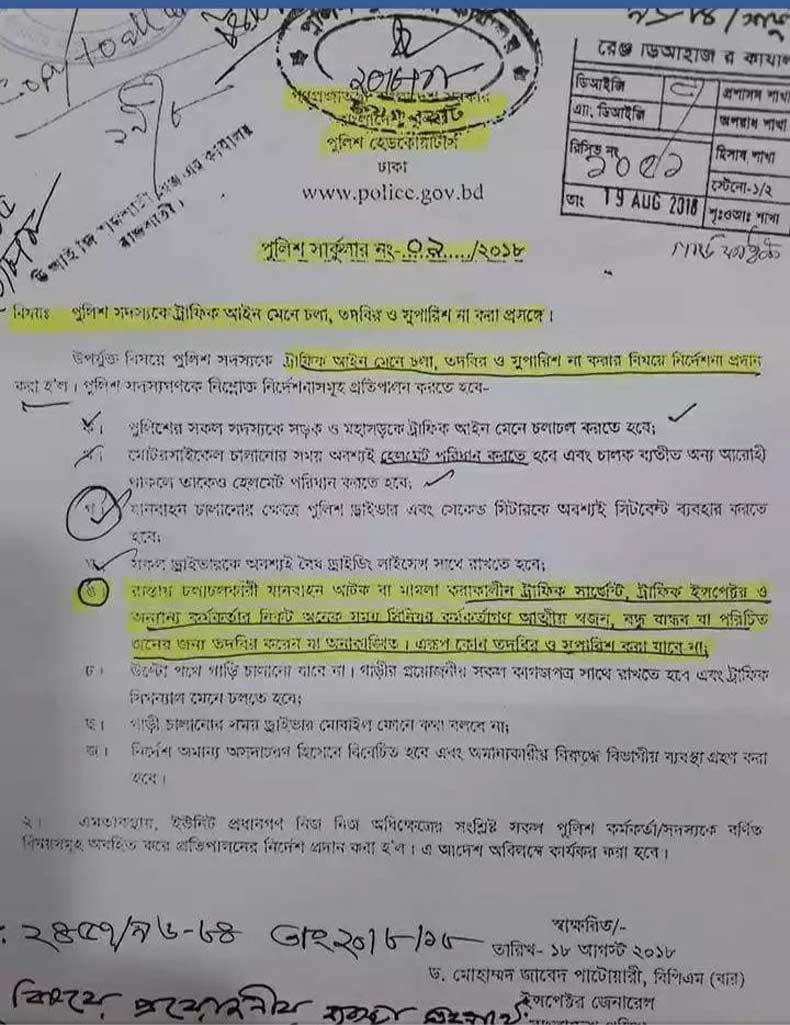 Copy to all
২২/৮
রেঞ্জ ডিআইজি র কার্যাল
ডিআইজি
প্রশাসন শাখা
এ্যা. ডিআইজি
অপরাধ শাখা
রিসিভ নং
হিসাব শাখা
স্টেনো-১/২
তাং 19 AUG 2018
গণপ্রজাতন্ত্রী বাংলাদেশ সরকার
বাংলাদেশ পুলিশ
পুলিশ হেডকোয়ার্টার্স
ঢাকা
www.police.gov.bd
রাজশাহী।
পুলিশ সার্কুলার নং-০২...../২০১৮
বিষয়ঃ পুলিশ সদস্যকে ট্রাফিক আইন মেনে চলা, তদবির ও সুপারিশ না করা প্রসঙ্গে।
উপর্যুক্ত বিষয়ে পুলিশ সদস্যকে ট্রাফিক আইন মেনে চলা, তদবির ও সুপারিশ না করার বিষয়ে নির্দেশনা প্রদান
করা হ'ল। পুলিশ সদস্যগণকে নিম্নোক্ত নির্দেশনাসমূহ প্রতিপালন করতে হবে-
ক। পুলিশের সকল সদস্যকে সড়ক ও মহাসড়কে ট্রাফিক আইন মেনে চলাচল করতে হবে;
খ। মোটরসাইকেল চালানোর সময় অবশ্যই হেলমেট পরিধান করতে হবে এবং চালক ব্যতীত অন্য আরোহী
থাকলে তাকেও হেলমেট পরিধান করতে হবে;
গ। যানবাহন চালানোর ক্ষেত্রে পুলিশ ড্রাইভার এবং সেকেন্ড সিটারকে অবশ্যই সিটবেল্ট ব্যবহার করতে
হবে;
ঘ। সকল ড্রাইভারকে অবশ্যই বৈধ ড্রাইভিং লাইসেন্স সাথে রাখতে হবে;
ঙ। রাস্তায় চলাচলকারী যানবাহন আটক বা মামলা করাকালীন ট্রাফিক সার্জেন্ট, ট্রাফিক ইন্সপেক্টর ও
অন্যান্য কর্মকর্তার নিকট অনেক সময় সিনিয়র কর্মকর্তাগণ আত্মীয় স্বজন, বন্ধু বান্ধব বা পরিচিত
জনের জন্য তদবির করেন যা অনাকাঙ্খিত। এরূপ কোন তদবির ও সুপারিশ করা যাবে না;
চ। উল্টো পথে গাড়ি চালানো যাবে না। গাড়ীর প্রয়োজনীয় সকল কাগজপত্র সাথে রাখতে হবে এবং ট্রাফিক
সিগন্যাল মেনে চলতে হবে;
ছ। গাড়ী চালানোর সময় ড্রাইভার মোবাইল ফোনে কথা বলবে না;
জ। নির্দেশ অমান্য অসদাচরণ হিসেবে বিবেচিত হবে এবং অমান্যকারীর বিরুদ্ধে বিভাগীয় ব্যবস্থা গ্রহণ করা
হবে।
২। এমতাবস্থায়, ইউনিট প্রধানগণ নিজ নিজ অধিক্ষেত্রের সংশ্লিষ্ট সকল পুলিশ কর্মকর্তা/সদস্যকে বর্ণিত
বিষয়সমূহ অবহিত করে প্রতিপালনের নির্দেশ প্রদান করা হ'ল। এ আদেশ অবিলম্বে কার্যকর করা হবে।
স্বাক্ষরিত/-
তারিখ- ১৮ আগস্ট ২০১৮
ড. মোহাম্মদ জাবেদ পাটোয়ারী, বিপিএম (বার)
ইন্সপেক্টর জেনারেল